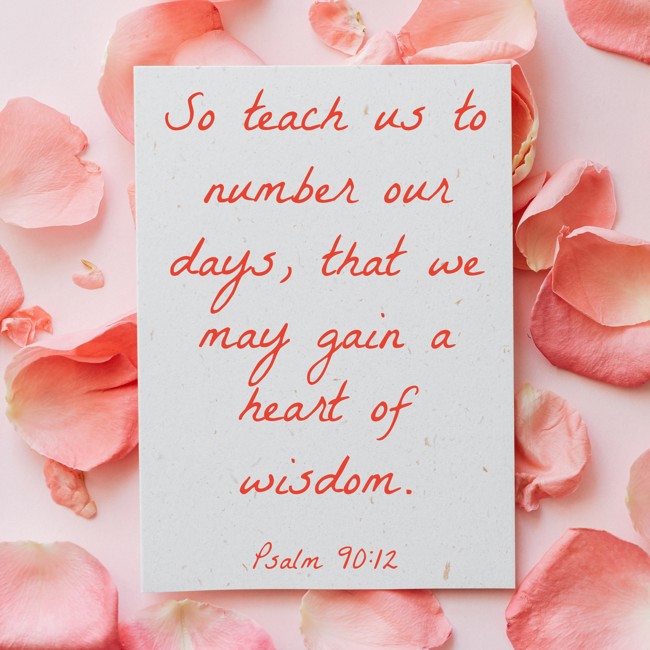 So teach us to
number our
days, that we
may gain a
heart of
wisdom.
Psalm 90:12